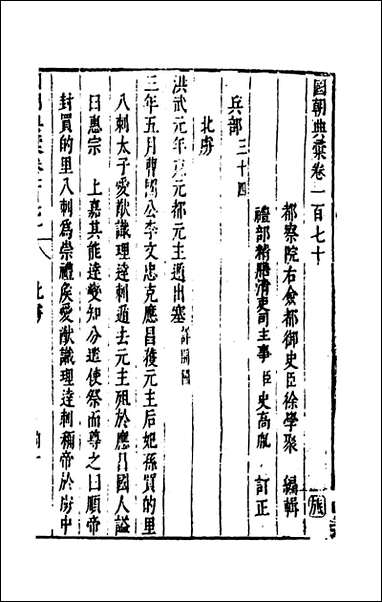 國朝典彙卷一百七十
都察院右僉都御史臣徐學聚 編輯
禮部精膳清吏司主事 臣 史高胤 訂正
兵部三十四
北虜
洪武元年克元都元主遁出塞
三年五月曹國公李文忠克應昌獲元主后妃孫買的里
八剌太子愛猷識理達剌遁去元主殂於應昌國人謚
曰惠宗 上嘉其能達變知分遣使祭而尊之曰順帝
封買的里八剌為崇禮矦愛猷識理達剌稱帝於虜中